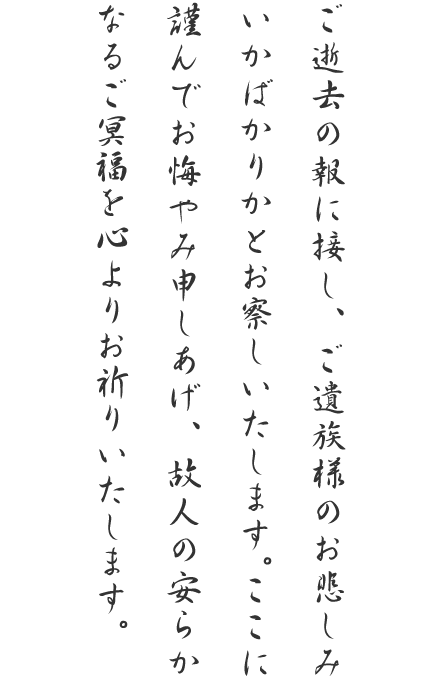 ご逝去の報に接し、ご遺族様のお悲しみ
いかばかりかとお察しいたします。ここに
謹んでお悔やみ申しあげ、故人の安らか
なるご冥福を心よりお祈りいたします。